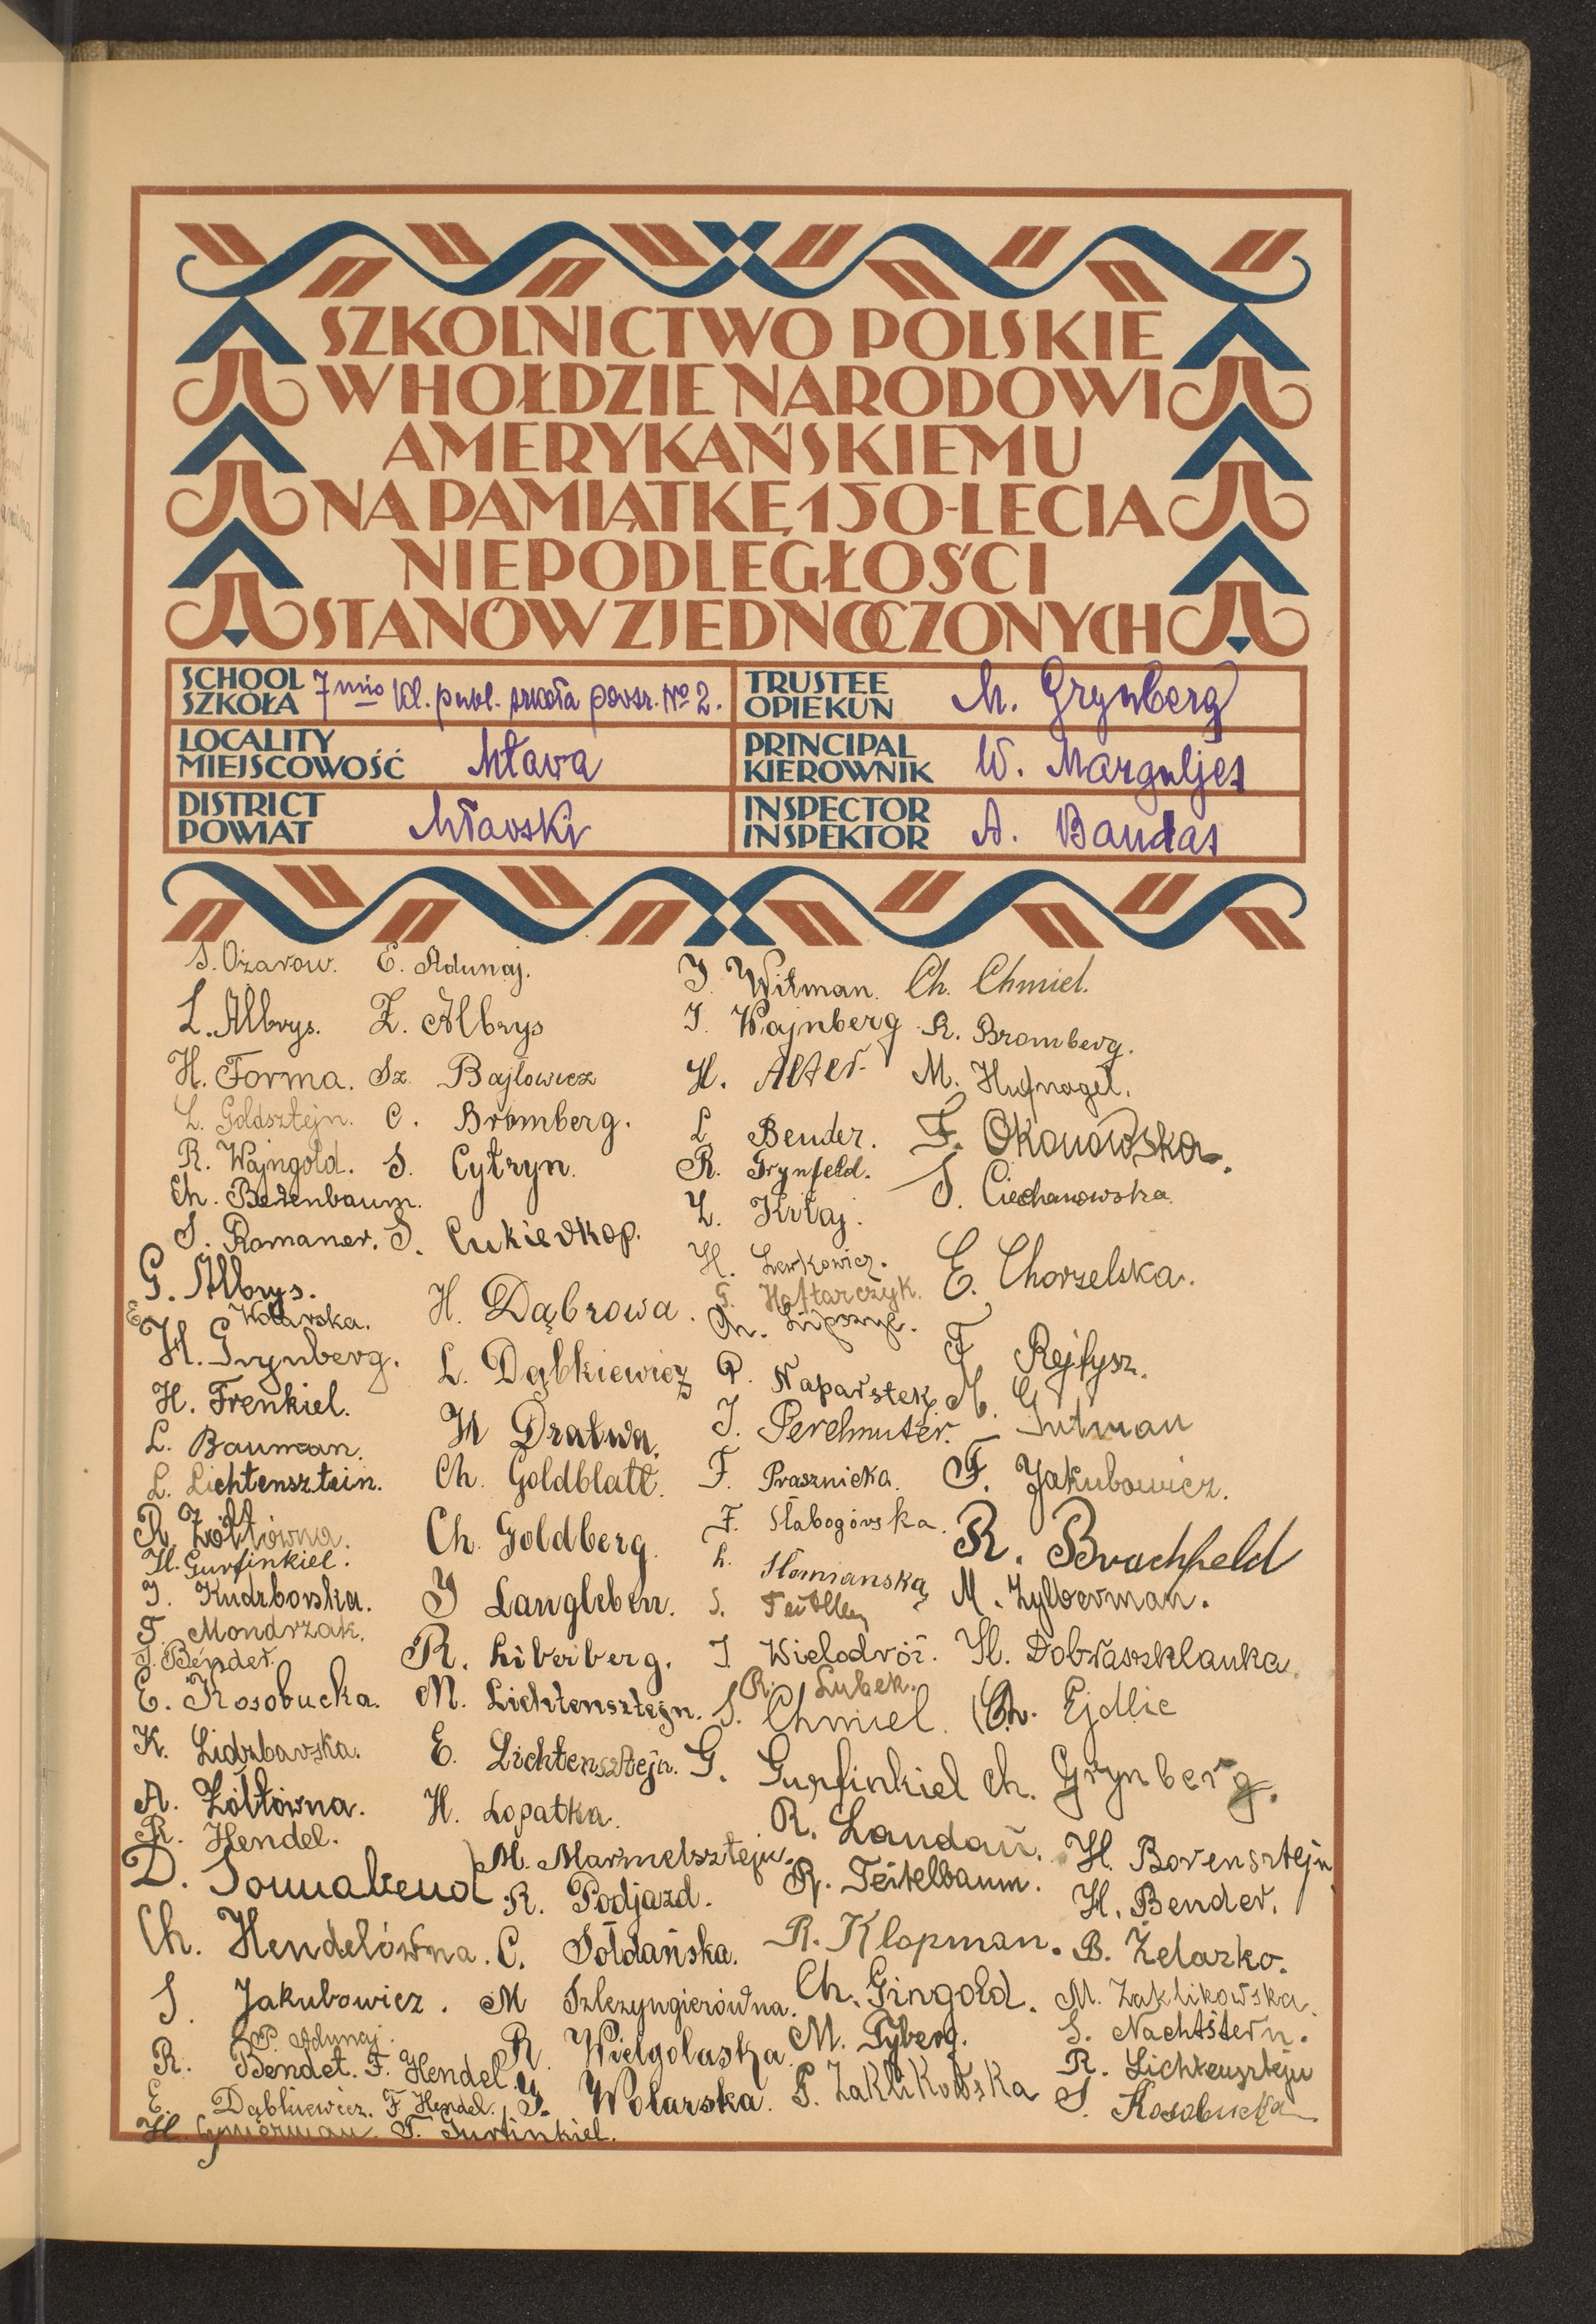 SZKOLNICTWO POLSKIE
W HOŁDZIE NARODOWI
AMERYKAŃSKIEMU
NA PAMIĄTKĘ 150-LECIA
NIEPODLEGŁOŚCI
STANÓW ZJEDNOCZONYCH
SCHOOL
SZKOŁA 7mio kl. publ. szkoła powsz. No 2.
TRUSTEE
OPIEKUN M. Grynberg
LOCALITY
MIEJSCOWOŚĆ Mława
PRINCIPAL
KIEROWNIK W. Marguljes
DISTRICT
POWIAT Mławski
INSPECTOR
INSPEKTOR A. Baudas
S. Ożarow.
L. Albrys.
H. Forma.
L. Goldsztejn.
R. Wajngold.
Ch. Bezenbaum.
S. Romaner.
G. Albrys.
E. Wolarska.
H. Grynberg.
H. Frenkiel.
L. Bauman.
L. Lichtensztein.
R. Żółtówna.
H. Gurfinkiel.
I. Kudzborska.
F. Mondrzak.
J. Bender.
E. Kosobucka.
K. Lidzbarska.
A. Żółtówna.
R. Hendel.
D. Sonnabend
Ch. Hendelówna.
S. Jakubowicz.
P. Adunaj.
R. Bendet. F. Hendel.
E. Dąbkiewicz. F. Hendel.
H. Cymerman. F. Gurfinkiel.
E. Adunaj.
Z. Albrys
Sz. Bajłowicz
C. Bromberg.
S. Cytryn.
S. Cukierkop.
H. Dąbrowa.
L. Dąbkiewicz
H Dratwa.
Ch. Goldblatt.
Ch. Goldberg.
I Langleben.
R. Liberberg.
M. Lichtensztejn.
E. Lichtensztejn.
H. Łopatka.
M. Marmelsztejn.
R. Podjazd.
C. Sołdańska.
M Szlezyngierówna.
R. Wielgolaska.
G. Wolarska.
I. Witman.
I. Wajnberg
H. Alter
L. Bender.
R. Grynfeld.
L. Krtaj.
H. Lewkowicz.
G. Haftarczyk.
Ch. Lipszyc.
P. Naparstek
I. Perelmuter.
F. Prasznicka.
F. Słabogórska.
L. Słomianska
S.
I. Wielodróż.
R. Lubek.
S. Chmiel.
G. Gurfinkiel
R. Landau.
R. Teitelbaum.
R. Klopman.
Ch. Gingold.
M. Tyberg.
P. Zaklikowska
Ch. Chmiel.
R. Bromberg.
M. Hufnagel.
F. Okonowska.
S. Ciechanowska.
E. Chorzelska.
F Rejfysz.
M. Gutman
F. Jakubowicz.
R. Brachfeld
M. Zylberman.
H. Dobraszklanka.
Ch. Ejdlic
Ch. Grynberg.
H. Borensztejn
H. Bender.
B. Żelazko.
M. Zaklikowska.
S. Nachtstern.
R. Lichtensztejn
S. Kosobucka